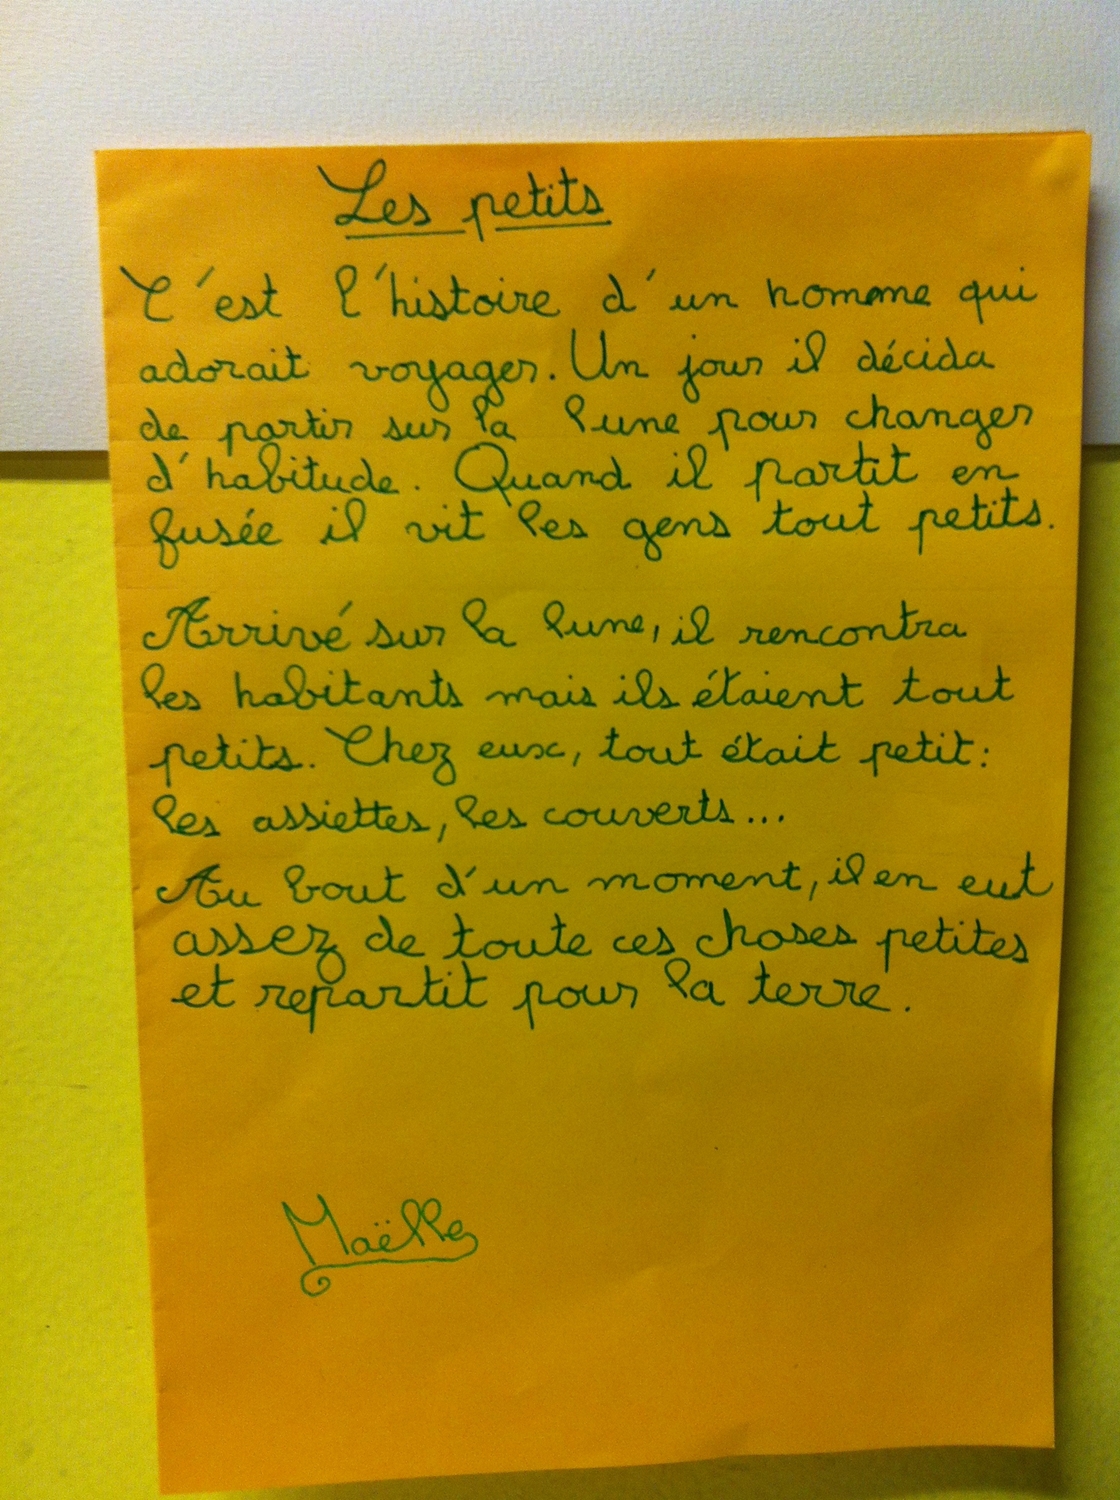 Les petits
C'est l'histoire d'un homme qui
adorait voyager. Un jour il décida
de partir sur la lune pour changer
d'habitude. Quand il partit en
fusée il vit les gens tout petits.
Arrivé sur la lune, il rencontra
les habitants mais ils étaient tout
petits. Chez eux, tout était petit :
les assiettes, les couverts...
Au bout d'un moment, il en eut
assez de toute ces choses petites
et repartit pour la terre.
Maëlle